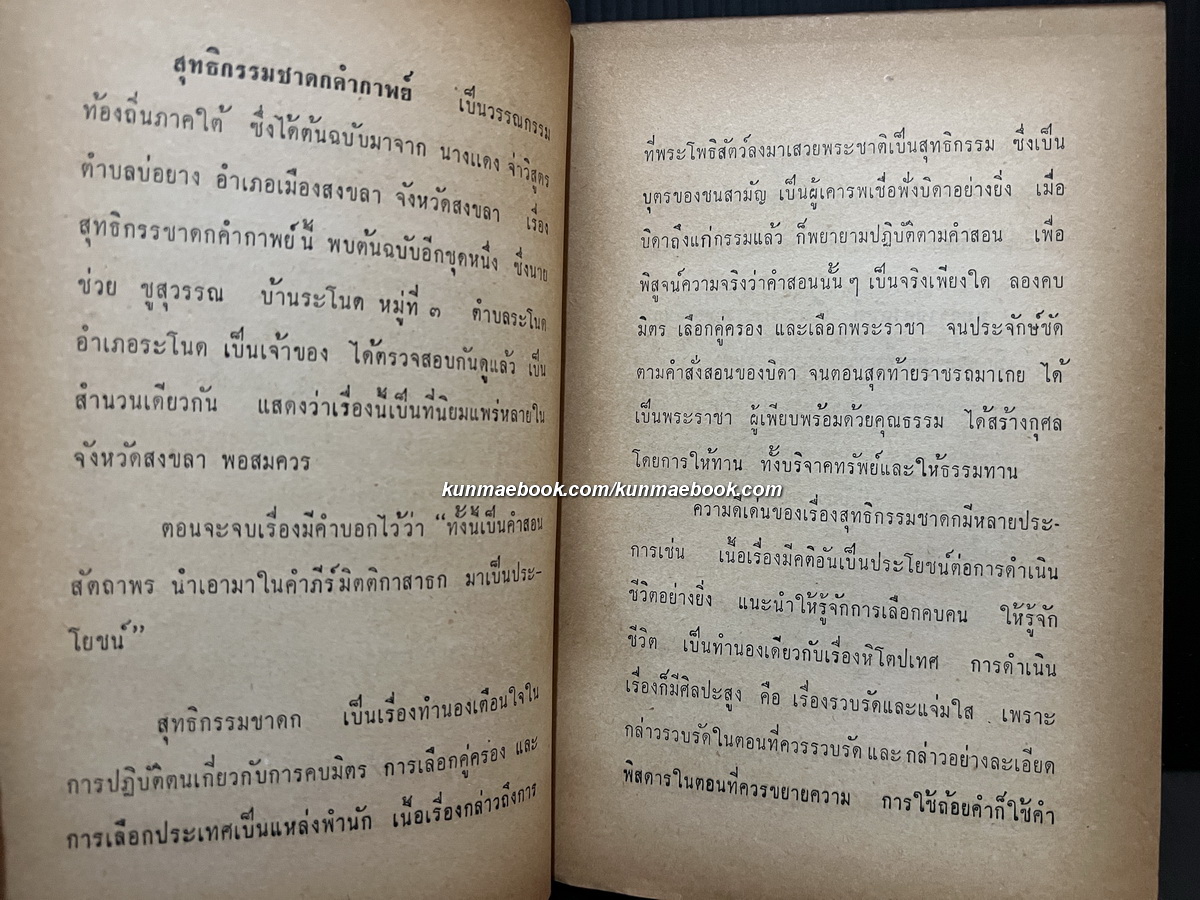 สุทธิกรรมชาดกคำกาพย์ เป็นวรรณกรรม
ท้องถิ่นภาคใต้ ซึ่งได้ต้นฉบับมาจาก นางแดง จ่าวิสูตร
ตำบลบ่อยาง อำเภอเมืองสงขลา จังหวัดสงขลา เรื่อง
สุทธิกรรชาดกคำกาพย์นี้ พบต้นฉบับอีกชุดหนึ่ง ซึ่งนาย
ช่วย ชูสุวรรณ บ้านระโนด หมู่ที่ ๓ ตำบลระโนด
อำเภอระโนด เป็นเจ้าของ ได้ตรวจสอบกันดูแล้ว เป็น
สำนวนเดียวกัน แสดงว่าเรื่องนี้เป็นที่นิยมแพร่หลายใน
จังหวัดสงขลา พอสมควร
ตอนจะจบเรื่องมีคำบอกไว้ว่า “ทั้งนี้เป็นคำสอน
สัตถาพร นำเอามาในคำภีร์มิตติกาสาธก มาเป็นประ-
โยชน์”
สุทธิกรรมชาดก เป็นเรื่องทำนองเตือนใจใน
การปฏิบัติตนเกี่ยวกับการคบมิตร การเลือกคู่ครอง และ
การเลือกประเทศเป็นแหล่งพำนัก เนื้อเรื่องกล่าวถึงการ
ที่พระโพธิสัตว์ลงมาเสวยพระชาติเป็นสุทธิกรรม ซึ่งเป็น
บุตรของชนสามัญ เป็นผู้เคารพเชื่อฟังบิดาอย่างยิ่ง เมื่อ
บิดาถึงแก่กรรมแล้ว ก็พยายามปฏิบัติตามคำสอน เพื่อ
พิสูจน์ความจริงว่าคำสอนนั้น ๆ เป็นจริงเพียงใด ลองคบ
มิตร เลือกคู่ครอง และเลือกพระราชา จนประจักษ์ชัด
ตามคำสั่งสอนของบิดา จนตอนสุดท้ายราชรถมาเกย ได้
เป็นพระราชา ผู้เพียบพร้อมด้วยคุณธรรม ได้สร้างกุศล
โดยการให้ทาน ทั้งบริจาคทรัพย์และให้ธรรมทาน
kunmaebook.com/kunmaebook.com
ความดีเด่นของเรื่องสุทธิกรรมชาดกมีหลายประ-
การเช่น เนื้อเรื่องมีคติอันเป็นประโยชน์ต่อการดำเนิน
ชีวิตอย่างยิ่ง แนะนำให้รู้จักการเลือกคบคน ให้รู้จัก
ชีวิต เป็นทำนองเดียวกับเรื่องหิโตปเทศ การดำเนิน
เรื่องก็มีศิลปะสูง คือ เรื่องรวบรัดและแจ่มใส เพราะ
กล่าวรวบรัดในตอนที่ควรรวบรัด และ กล่าวอย่างละเอียด
พิสดารในตอนที่ควรขยายความ การใช้ถ้อยคำก็ใช้คำ